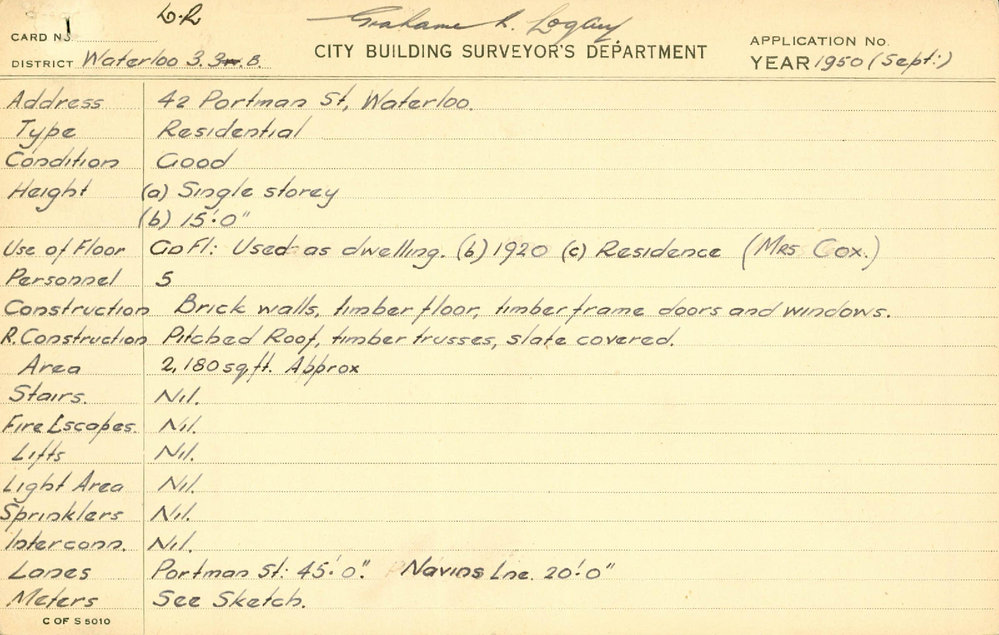 L.R Grahame R. Logan
CARD No. 1
CITY BUILDING SURVEYOR'S DEPARTMENT
APPLICATION No.
DISTRICT Waterloo 3. B.
YEAR 1950 (Sept:)
Address 42 Portman St, Waterloo.
Type Residential
Condition Good
Height (a) Single storey
(b) 15'.0"
Use of Floor GD Fl: Used as dwelling. (b) 1920 (c) Residence (Mrs Cox.)
Personnel 5
Construction Brick walls, timber floor, timber frame doors and windows.
R.Construction Pitched Roof, timber trusses, slate covered.
Area 2,180 sq.ft. Approx
Stairs. Nil.
Fire Escapes. Nil.
Lifts Nil.
Light Area Nil.
Sprinklers Nil.
Interconn. Nil.
Lanes Portman St: 45'.0". Navins Lne. 20'.0"
Meters See Sketch.
C OF S 5010